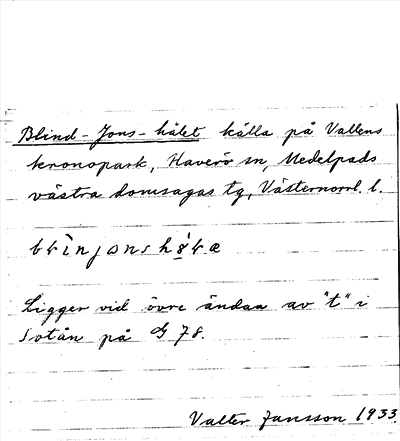 Blind-Jons-hålet källa på Vallens
kronopark, Haverö sn, Medelpads
västra domsagas tg, Västernorrl. l.
Ligger vid övre ändan av "t" i
Sotån på G 78.
Valter Jansson 1933